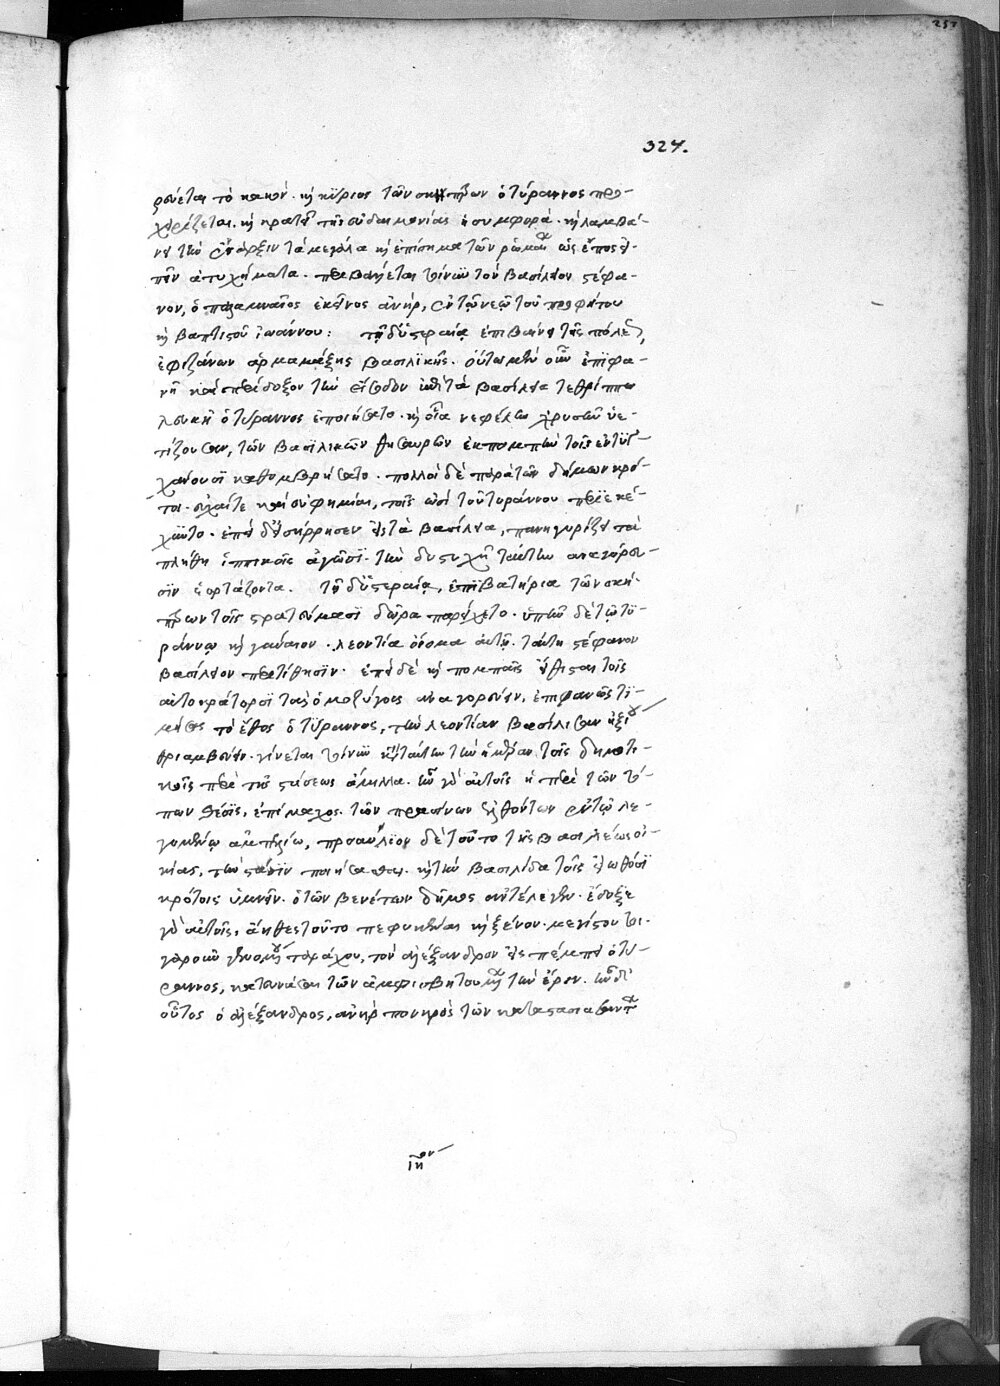 327.
ρεύεται τὸ κακόν. καὶ κύριος τῶν σκήπτρων ὁ τύραννος προ-
χειρίζεται. καὶ κρατεῖ τῆς εὐδαιμονίας ἡ συμφορά. καὶ λαμβά-
νει τὴν ἔναρξιν τὰ μεγάλα καὶ ἐπίσημα τῶν ῥωμαίων ὡς ἔπος εἰ-
πεῖν ἀτυχήματα. περιβάλλεται γοῦν τὸν βασίλειον στέφα-
νον, ὁ παλαμναῖος ἐκεῖνος ἀνήρ, ἐν τῷ νεῷ τοῦ προφήτου
καὶ βαπτιστοῦ ἰωάννου: τῇ δ' ὑστεραία ἐπιβαίνει τῆς πόλεως,
ἐφιζάνων ἁρμαμάξης βασιλικῆς. οὕτω μὲν οὖν ἐπιφα-
νῆ καὶ περίδοξον τὴν εἴσοδον ἐπὶ τὰ βασίλεια τεθρίππω
λευκῆ ὁ τύραννος ἐποιήσατο. καὶ οἷα νεφέλην χρυσῶν ὑε-
τίζουσαν, τῶν βασιλικῶν θησαυρῶν ἐκπομπὴν τοῖς ἐντυγ-
χάνουσι καθομβρήσατο. πολλοὶ δὲ παρὰ τῶν δήμων κρό-
τοι. εὐχαί τε καὶ εὐφημίαι, τοῖς ὠσὶ τοῦ τυράννου περιεκέ-
χυντο. ἐπεὶ δ' εἰσήρρησεν εἰς τὰ βασίλεια, πανηγυρίζει τὰ
πλήθη ἱππικοῖς ἀγῶσι. τὴν δυστυχῆ ταύτην ἀναγόρευ-
σιν ἑορτάζοντα. τῇ δ' ὑστεραία, ἐπιβατήρια τῶν σκή-
πτρων τοῖς στρατεύμασι δῶρα παρείχετο. ὑπῆν δὲ τῷ τυ-
ράννω καὶ γύναιον. λεοντία ὄνομα αὐτῆ. ταύτη στέφανον
βασίλειον περιτίθησιν. ἐπεὶ δὲ καὶ πομπαῖς εἴθισται τοῖς
αὐτοκράτορσι τὰς ὁμοζύγους ἀναγορεύειν, ἐπιφανῶς τι-
μήσας τὸ ἔθος ὁ τύραννος, τὴν λεοντίαν βασιλίσσαν ἠξίου
θριαμβεύειν. γίνεται γοῦν κατὰ ταύτην τὴν ἡμέραν τοῖς δημοτι-
κοῖς περὶ τῆς στάσεως ἅμιλλα. ἦν γὰρ αὐτοῖς ἡ περὶ τῶν τό-
πων θέσις, ἐπίμαχος. τῶν πρασίνων ἐλθόντων ἐν τῷ λε-
γομένῳ ἀμπελίῳ, προσαύλιον δὲ τοῦτο τῆς βασιλέως οἰ-
κίας, τὴν στάσιν ποιήσασθαι. καὶ τὴν βασιλίδα τοῖς εἰωθόσι
κρότοις ὑμνεῖν. ὁ τῶν βενέτων δῆμος ἀντέλεγεν. ἔδοξε
γὰρ αὐτοῖς, ἀηθὲς τοῦτο πεφυκέναι καὶ ξένον. μεγίστου τοι-
γαροῦν γενομένου ταράχου, τὸν ἀλέξανδρον εἰσπέμπει ὁ τύ-
ραννος, κατευνάσαι τῶν ἀμφισβητουμένων τὴν ἔριν. ἦν δὲ
οὗτος ὁ ἀλέξανδρος, ἀνὴρ πονηρὸς τῶν καταστασιασάντων